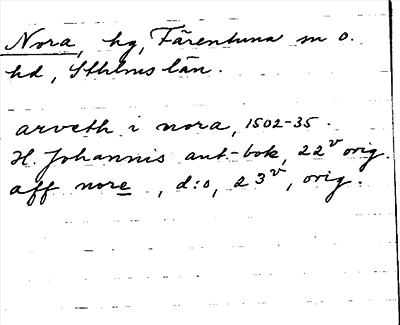 Nora, hg, Färentuna sn o.
hd, Sthlms län.
arveth i nora, 1502-35.
H. Johannis ant.-bok, 22v orig.
aff nore, d:o, 23v, orig.